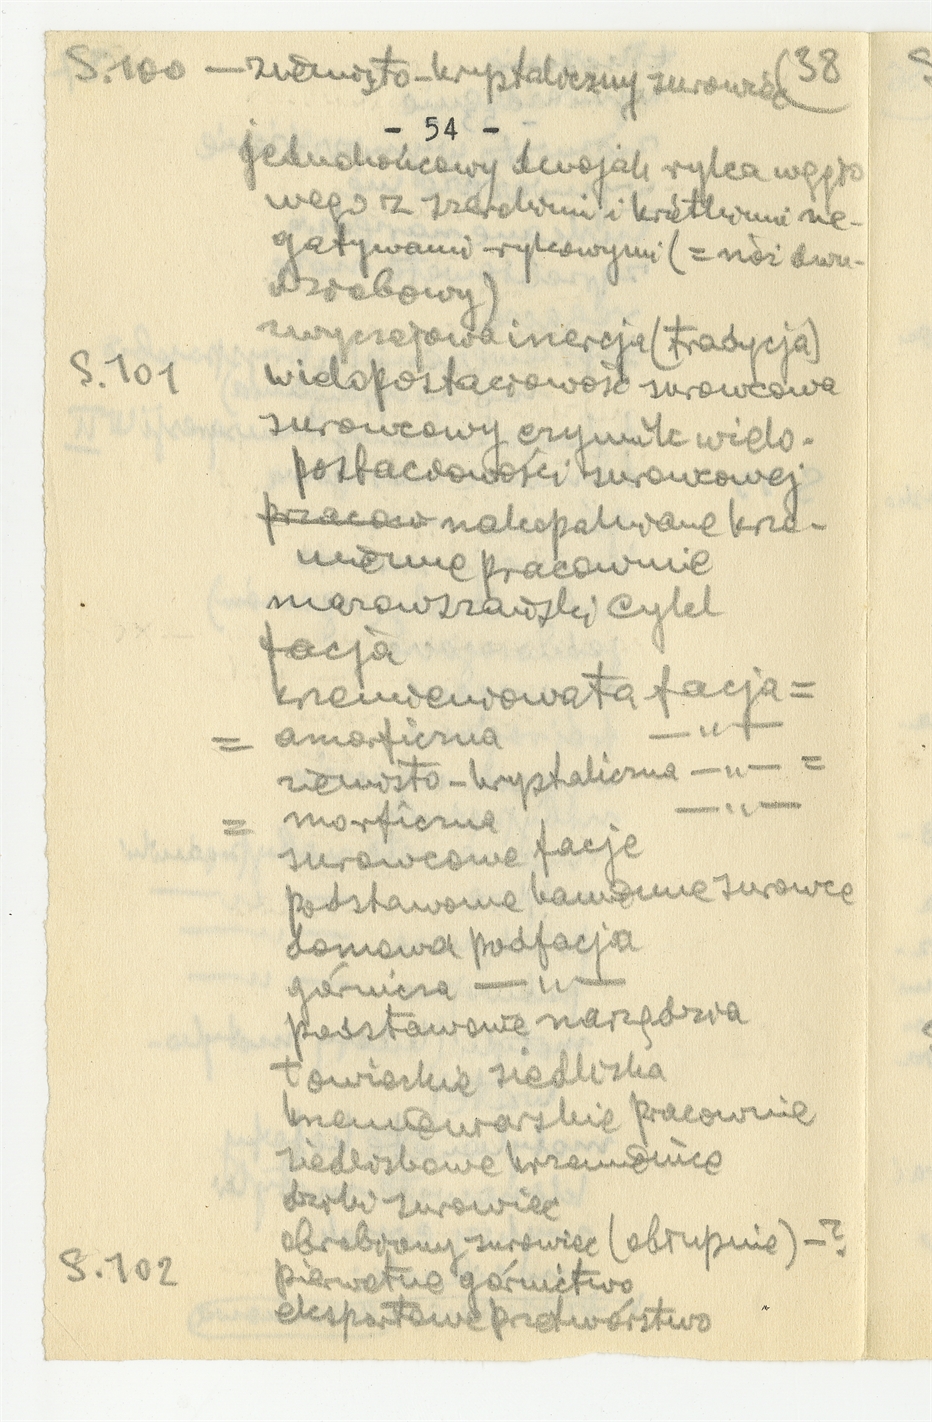 S.100 — ziemisto-krystaliczny surowiec (38
- 54 -
jednokońcowy dwojak rylca węgło
wego z szerokimi i krótkimi ne-
gatywami rylcowymi (= nóż dwu-
drobowy)
zwyczajowa inercja (tradycja)
S.101 wielopostaciowość surowcowa
surowcowy czynnik wielo-
postaciowości surowcowej
pracow nakopalniane krze-
mienne pracownie
mazowszański Cykl
facja
krzemieniowata facja =
= amorficzna —"—
ziemisto-krystaliczna —"— =
= morficzna —"—
surowcowe facje
podstawowe kamienne surowce
domowa podfacja
górnicza —"—
podstawowe narzędzia
łowieckie siedliska
krzemieniarskie pracownie
siedliskowe krzemienice
dziki surowiec
obrobiony surowiec (obłupnie) - ?
S.102 pierwotne górnictwo
eksportowe przetwórstwo